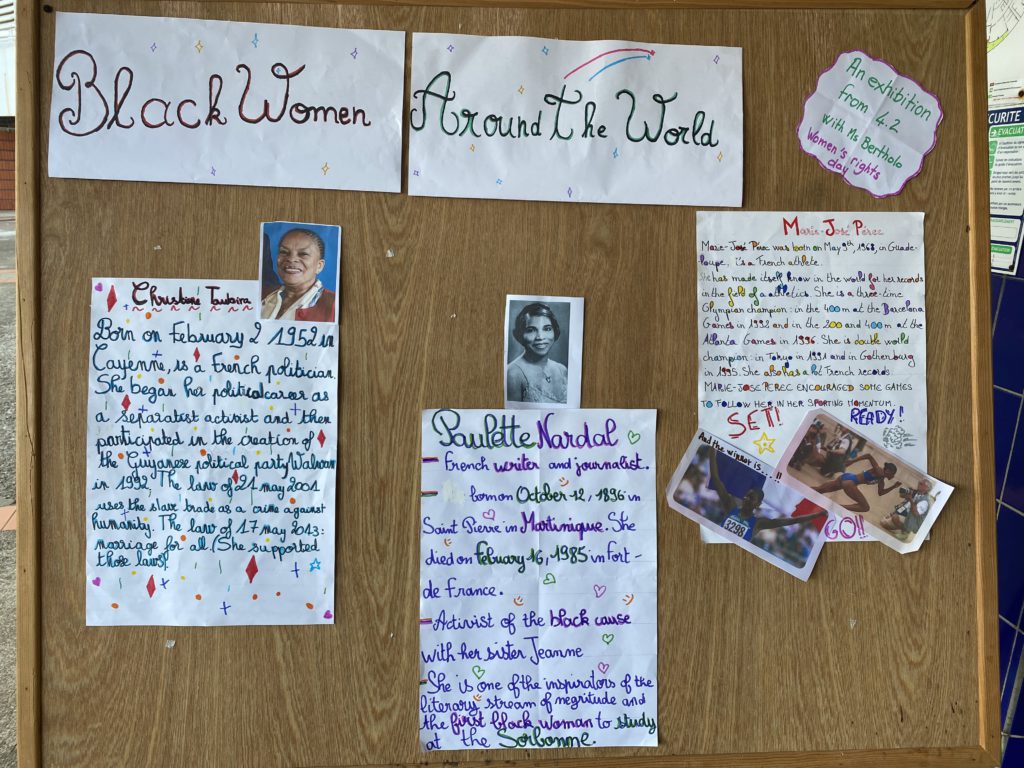 Black Women
Around The World
An exhibition
from 4.2
with Ms Bertholo
Women's rights
day
Christiane Taubira
Born on February 2 1952 in
Cayenne, is a French politician
She began her political career as
a separatist activist and then
participated in the creation of
the Guyanese political party Walwari
in 1992. The law of 21 may 2001
uses the slave trade as a crime against
humanity. The law of 17 may 2013:
marriage for all. (She supported
those laws).
Paulette Nardal
French writer and journalist.
born on October 12, 1896 in
Saint Pierre in Martinique. She
died on Febuary 16, 1985 in Fort-
de France.
Activist of the black cause
with her sister Jeanne
She is one of the inspirators of the
literary stream of negritude and
the first black woman to study
at the Sorbonne.
Marie-José Pérec
Marie-José Pérec was both on May 9th, 1968, in Guade-
loupe, is a French athlete.
She has made itself know in the world for her records
in the field of a athletics. She is a three-time
Olympian champion: in the 400m at the Barcelona
Games in 1992 and in the 200 and 400m at the
Atlanta Games in 1996. She is double world
champion: in Tokyo in 1991 and in Gothenburg
in 1995. She also has a lot French records.
MARIE-JOSÉ PEREC ENCOURAGED SOME GAMES
TO FOLLOW HER IN HER SPORTING MOMENTUM.
SET!
READY!
And the winner is....!!
3298
GO!!
CURITE
EVACUATION